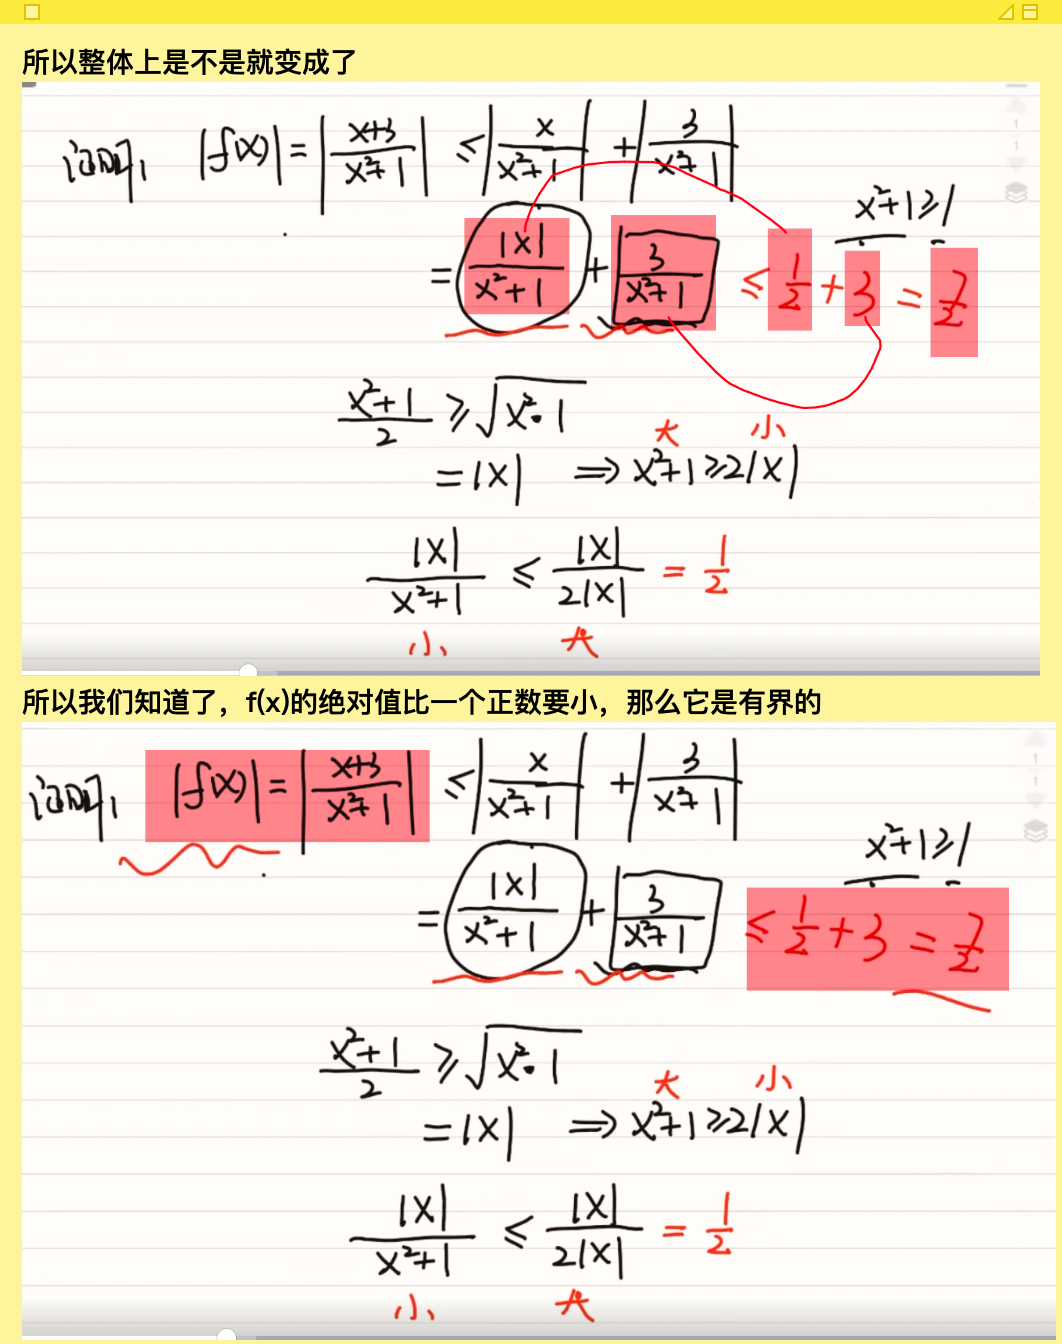 所以整体上是不是就变成了
证明: |f(x)| = |x+3/x²+1| ≤ |x/x²+1| + |3/x²+1|
x²+1≥1
= |x|/x²+1 + 3/x²+1 ≤ 1/2 + 3 = 7/2
x²+1/2 ≥ √x²·1
大 小
= |x| ⇒ x²+1≥2|x|
|x|/x²+1 ≤ |x|/2|x| = 1/2
小 大
所以我们知道了，f(x)的绝对值比一个正数要小，那么它是有界的
证明: |f(x)| = |x+3/x²+1| ≤ |x/x²+1| + |3/x²+1|
x²+1≥1
= |x|/x²+1 + 3/x²+1 ≤ 1/2 + 3 = 7/2
x²+1/2 ≥ √x²·1
大 小
= |x| ⇒ x²+1≥2|x|
|x|/x²+1 ≤ |x|/2|x| = 1/2
小 大